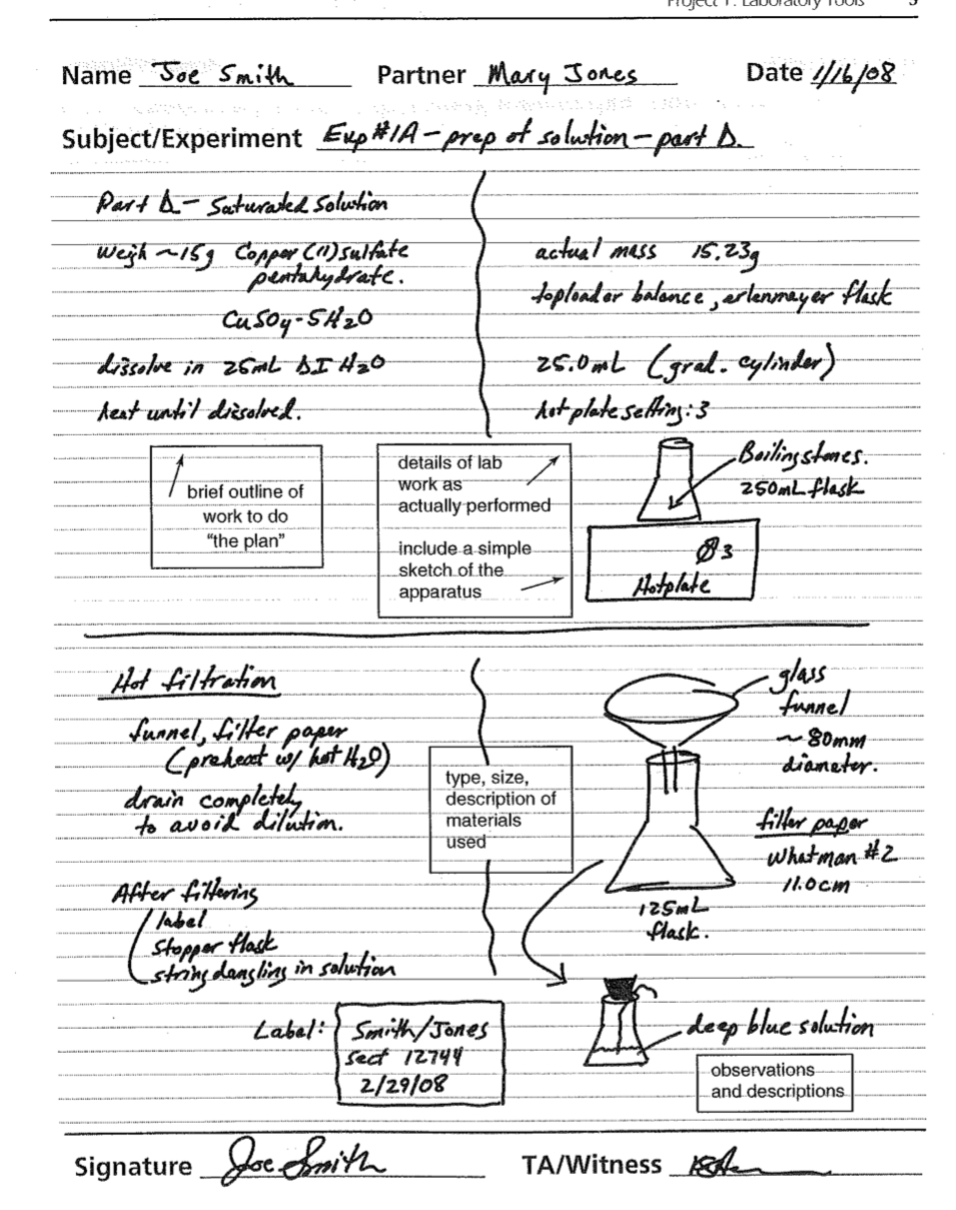 Project 1: Laboratory Tools 3
Name Joe Smith Partner Mary Jones Date 1/16/08
Subject/Experiment Exp #1A - prep of solution - part D.
Part D - Saturated Solution
Weigh ~15g Copper (II) sulfate
pentahydrate.
CuSO4-5H2O
dissolve in 25mL DI H2O
heat until dissolved.
actual mass 15.23g
toploader balance, erlenmeyer flask
25.0mL (grad. cylinder)
hot plate setting: 3
brief outline of
work to do
"the plan"
details of lab
work as
actually performed
include a simple
sketch of the
apparatus
Boiling stones.
250mL flask
3
Hotplate
Hot filtration
funnel, filter paper
(preheat w/ hot H2O)
drain completely
to avoid dilution.
After filtering
label
stopper flask
string dangling in solution
type, size,
description of
materials
used
glass
funnel
~80mm
diameter.
filter paper
Whatman #2
11.0cm
125mL
flask.
Label: Smith/Jones
sect 12744
2/29/08
deep blue solution
observations
and descriptions
Signature Joe Smith TA/Witness